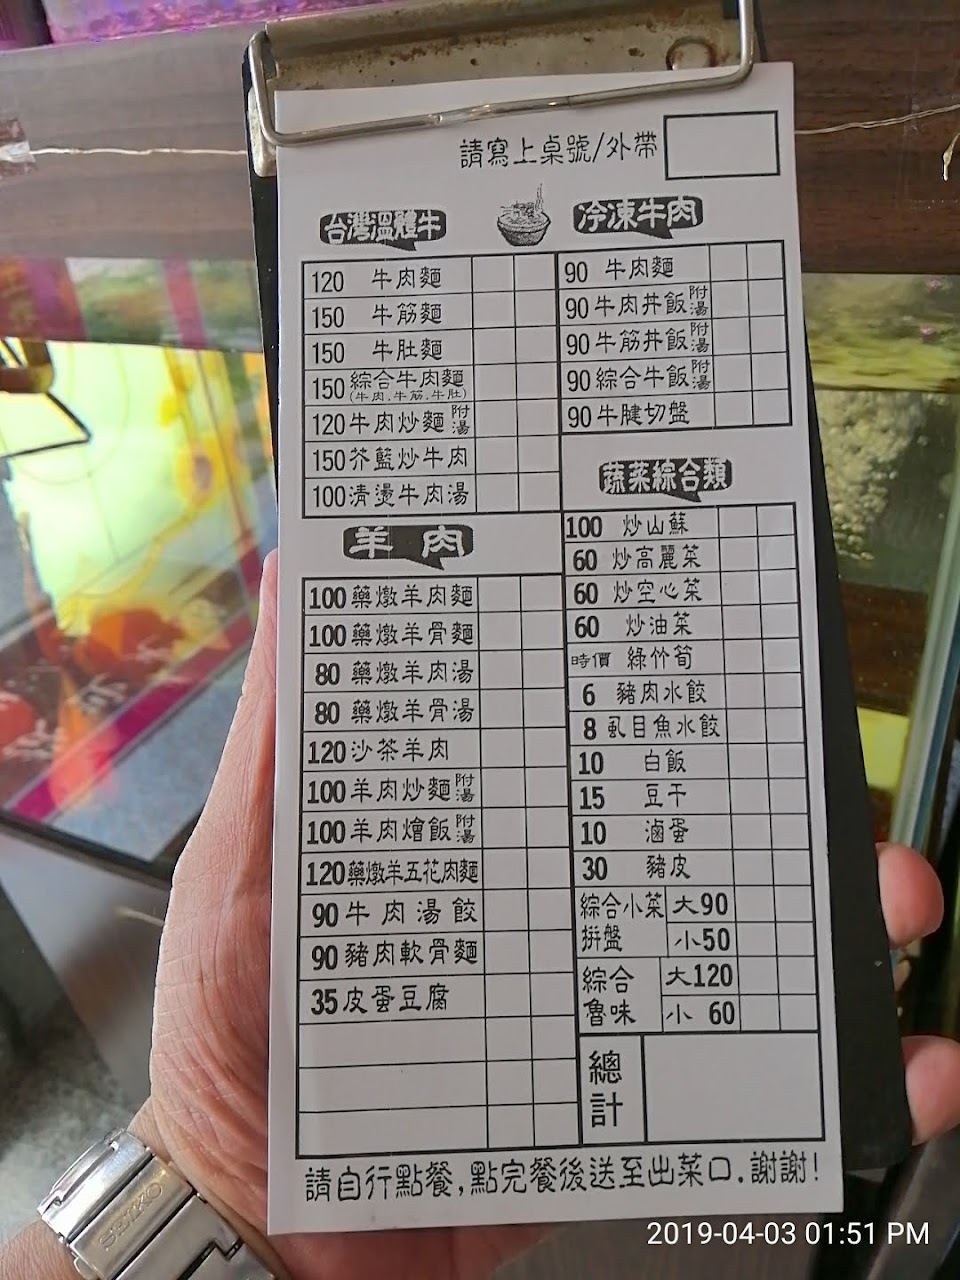 請寫上桌號/外帶
台灣溫體牛
120 牛肉麵
150 牛筋麵
150 牛肚麵
150 綜合牛肉麵
(牛肉.牛筋.牛肚)
120 牛肉炒麵 附湯
150 芥藍炒牛肉
100 清燙牛肉湯
羊肉
100 藥燉羊肉麵
100 藥燉羊骨麵
80 藥燉羊肉湯
80 藥燉羊骨湯
120 沙茶羊肉
100 羊肉炒麵 附湯
100 羊肉燴飯 附湯
120 藥燉羊五花肉麵
90 牛肉湯餃
90 豬肉軟骨麵
35 皮蛋豆腐
冷凍牛肉
90 牛肉麵
90 牛肉丼飯 附湯
90 牛筋丼飯 附湯
90 綜合牛飯 附湯
90 牛腱切盤
蔬菜綜合類
100 炒山蘇
60 炒高麗菜
60 炒空心菜
60 炒油菜
時價 綠竹筍
6 豬肉水餃
8 虱目魚水餃
10 白飯
15 豆干
10 滷蛋
30 豬皮
綜合小菜 大90
拼盤 小50
綜合 大120
魯味 小 60
總計
請自行點餐,點完餐後送至出菜口.謝謝!
SEIKO
2019-04-03 01:51 PM